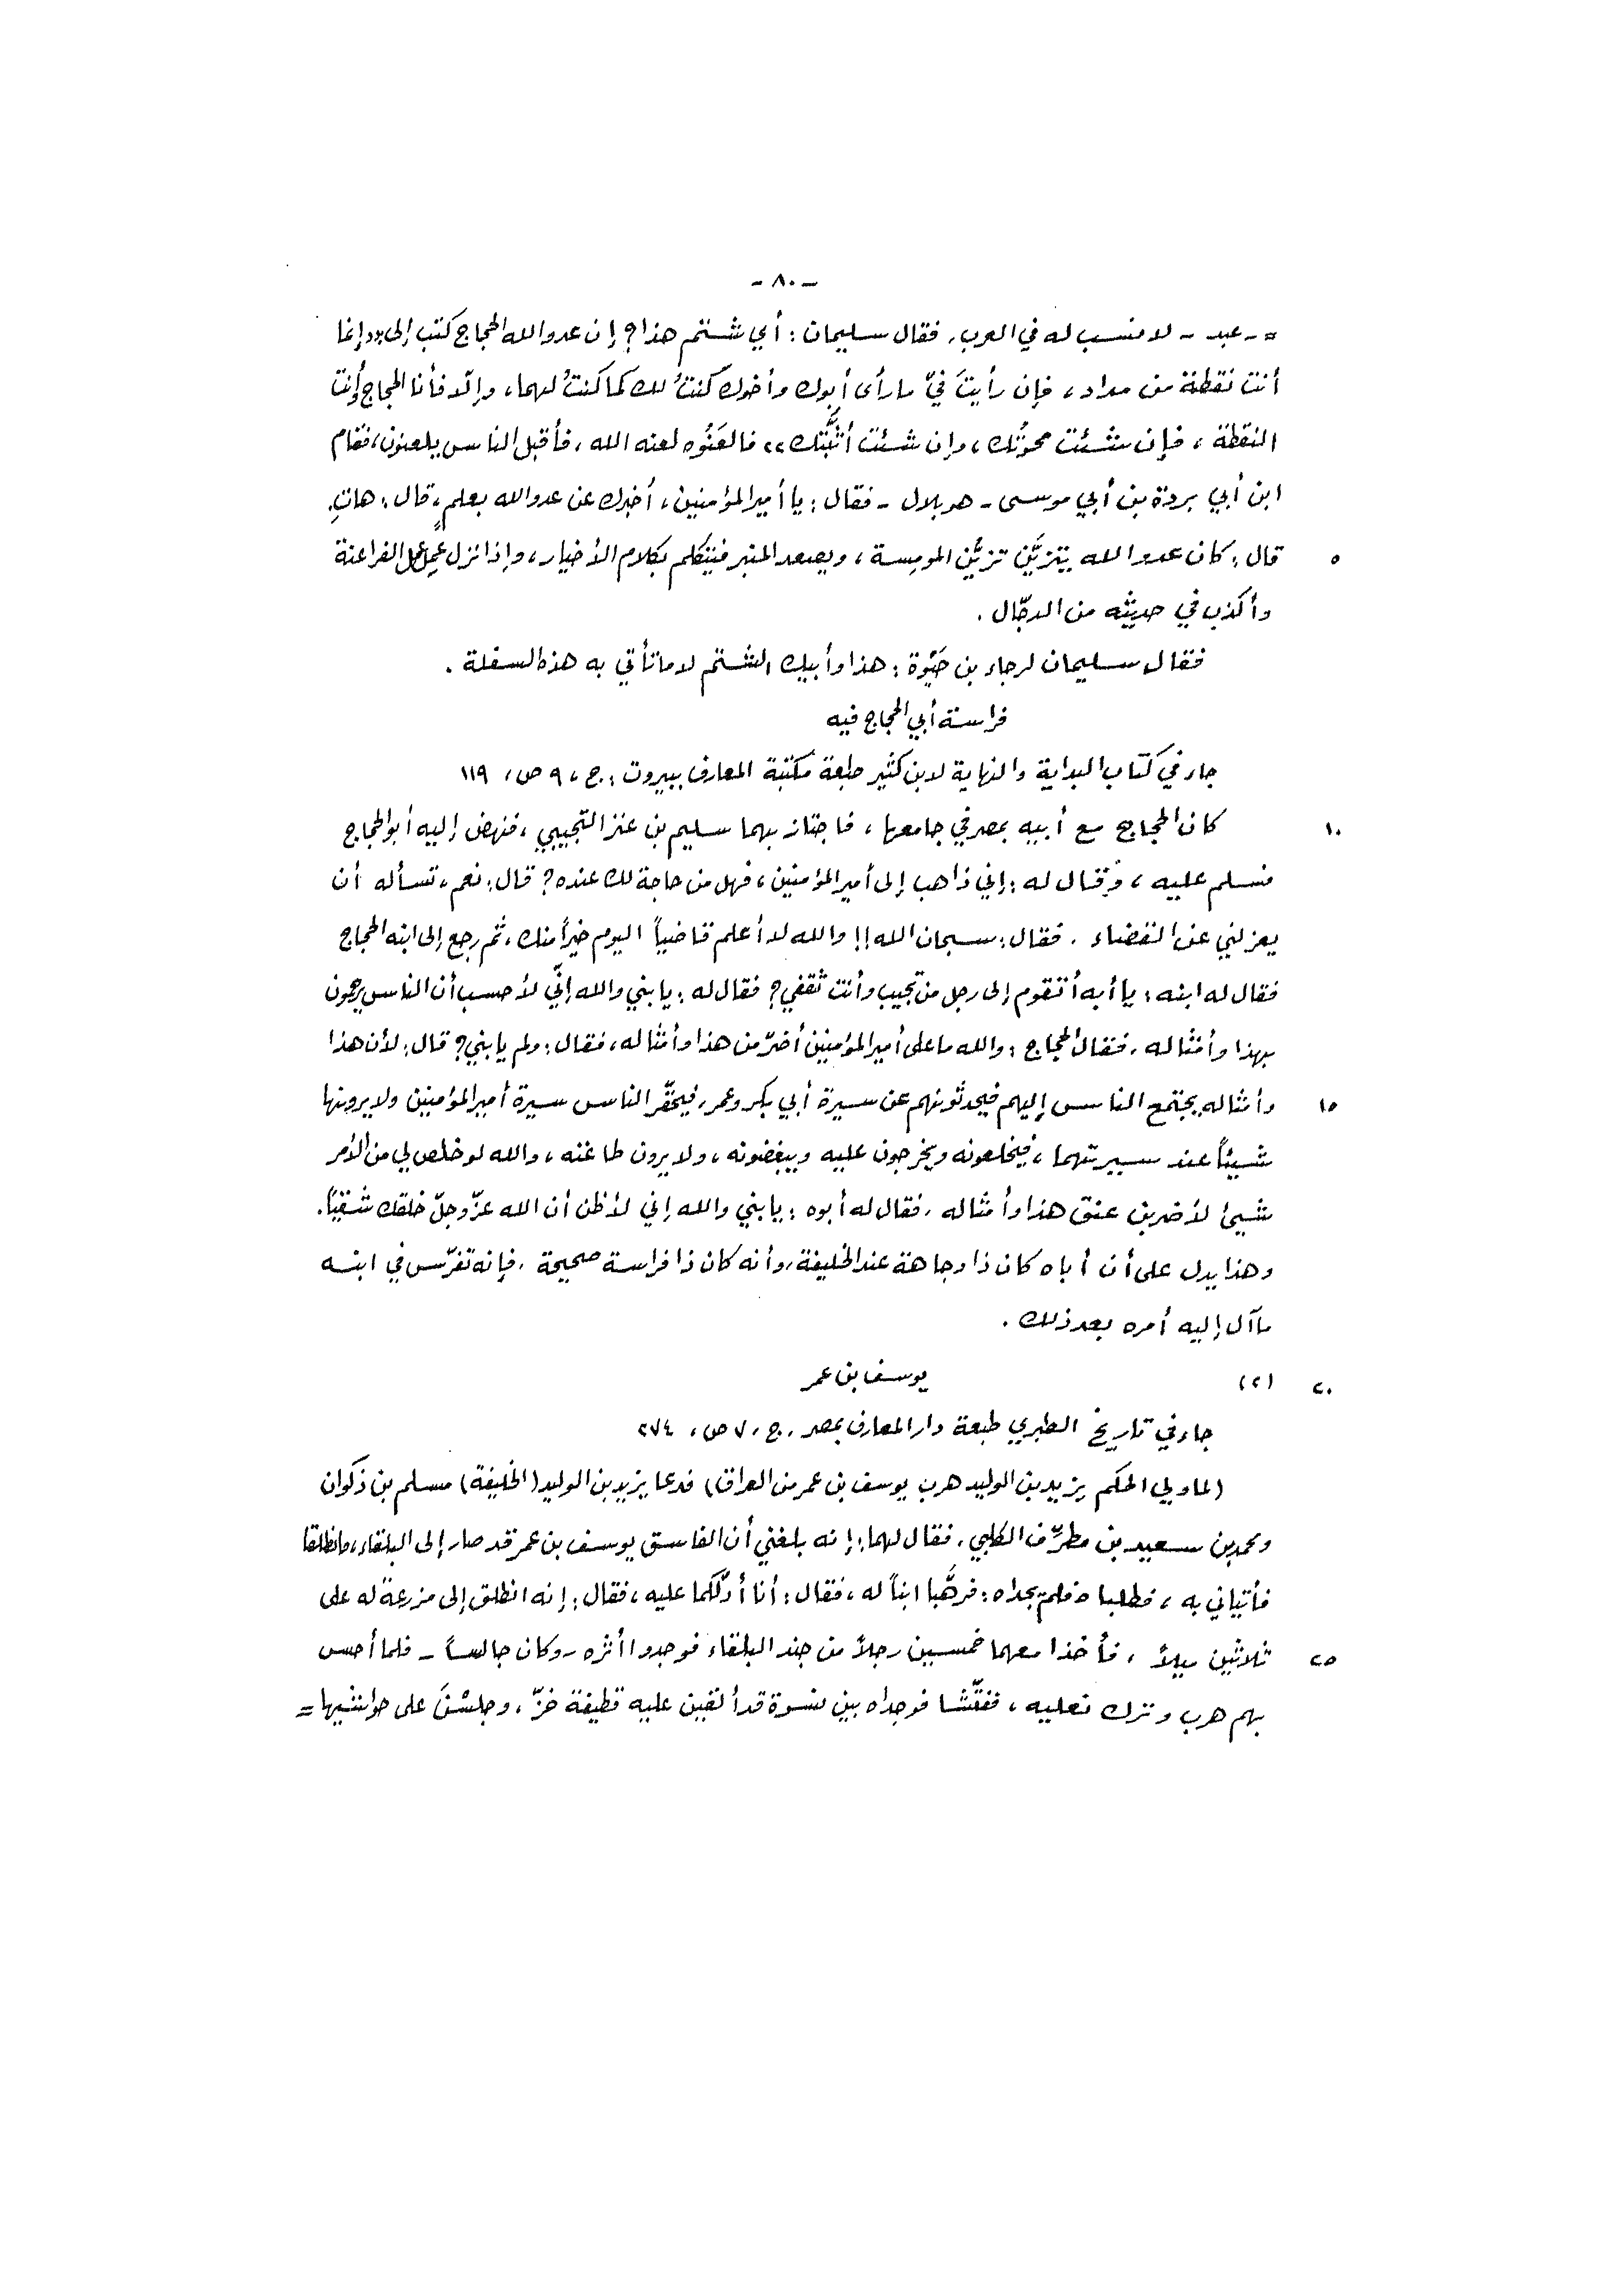 - ٨٠ -
= - عبد - لا منسب له في العرب، فقال سليمان: أي شتم هذا؟ إن عدو الله الحجاج كتب إلى «إنما
أنت نقطة من مداد، فإن رأيتَ فيّ ما رأى أبوك وأخوك كنتُ لك كما كنتُ لهما، وإلّا فأنا الحجاج وأنت
النقطة، فإن شئت محوتُك، وإن شئت أثبَتُّك» فالعَنُوه لعنه الله، فأقبل الناس يلعنون، فقام
ابن أبي بردة بن أبي موسى - هو بلال - فقال: يا أمير المؤمنين، أخبرك عن عدو الله بعلمٍ، قال: هاتِ.
٥ قال: كان عدو الله يتزيَّن تزيُّن المومِسة، ويصعد المنبر فيتكلم بكلام الأخيار، وإذا نزل عَمِل عمل الفراعنة
وأكذب في حديثه من الدجّال.
فقال سليمان لرجاء بن حَيْوة: هذا وأبيك الشتم لا ما تأتي به هذه السفلة.
فراسة أبي الحجاج فيه
جاء في كتاب البداية والنهاية لابن كثير طبعة مكتبة المعارف ببيروت: ج، ٩ ص، ١١٩
١٠ كان الحجاج مع أبيه بمصر في جامعها، فاجتاز بهما سليم بن عنز التجيبي، فنهض إليه أبو الحجاج
فسلم عليه، وقال له: إني ذاهب إلى أمير المؤمنين، فهل من حاجة لك عنده؟ قال: نعم، تسأله أن
يعزلني عن القضاء. فقال: سبحان الله!! والله لا أعلم قاضياً اليوم خيراً منك، ثم رجع إلى ابنه الحجاج
فقال له ابنه: يا أبه أتقوم إلى رجل من تجيب وأنت ثقفي؟ فقال له: يا بني والله إنّي لأحسب أن الناس يرحمون
بهذا وأمثاله. فقال الحجاج: والله ما على أمير المؤمنين أضرّ من هذا وأمثاله، فقال: ولم يا بني؟ قال: لأن هذا
١٥ وأمثاله يجتمع الناس إليهم فيحدثونهم عن سيرة أبي بكر وعمر، فيحقّر الناس سيرة أمير المؤمنين ولا يرونها
شيئاً عند سيرتهما، فيخلعونه ويخرجون عليه ويبغضونه، ولا يرون طاعته، والله لو خلص لي من الأمر
شيئ لأضربن عنق هذا وأمثاله، فقال له أبوه: يا بني والله إني لأظن أن الله عزّ وجلّ خلقك شقيّاً.
وهذا يدل على أن أباه كان ذا وجاهة عند الخليفة، وأنه كان ذا فراسة صحيحة، فإنه تفرّس في ابنه
ما آل إليه أمره بعد ذلك.
٢٠ (٢) يوسف بن عمر
جاء في تاريخ الطبري طبعة دار المعارف بمصر، ج، ٧ ص، ٢٧٤
(لما ولي الحكم يزيد بن الوليد هرب يوسف بن عمر من العراق) فدعا يزيد بن الوليد (الخليفة) مسلم بن ذكوان
ومحمد بن سعيد بن مطرِّف الكلبي، فقال لهما: إنه بلغني أن الفاسق يوسف بن عمر قد صار إلى البلقاء، فانطلقا
فأتياني به، فطلباه فلم يجداه: فرهَّبا ابناً له، فقال: أنا أدلّكما عليه، فقال: إنه انطلق إلى مزرعة له على
٢٥ ثلاثين ميلاً، فأخذا معهما خمسين رجلاً من جند البلقاء فوجدوا أثره - وكان جالساً - فلما أحس
بهم هرب وترك نعليه، ففتّشا فوجداه بين نسوة قد ألقين عليه قطيفة خزّ، وجلسْنَ على حواشيها =